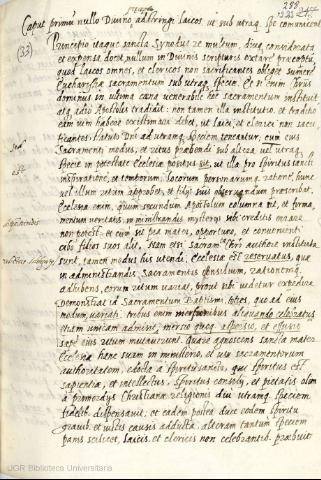 288
Caput primum nullo Divino adstringi laicos, ut sub utraq. spe communicent
(33) Principio itaque sancta Synodus
et exponit, docet, nullum in Divinis scripturis extare præceptum
quod laicos omnes, et clericos non sacrificantes obliget sumere
Eucharistiæ sacramentum sub utraq. specie. Et si enim Christus
dominus in ultima cœna venerabile hoc sacramentum instituit
atq. adeo Apostolis tradidit: non tamen illa institutio, et traditio
eam vim habere existimanda debet, ut laici, et clerici non sacri-
ficantes, statuto Dni ad utramq. speciem teneantur, cum eius
Sacramenti modus, et usus præbendi sub altera vel utraq.
specie in potestate Ecclesiæ positus sit, ut illa pro spiritus sancti
inspiratione, et temporum, locorum, personarum, ratione, hunc
vel illum ritum approbet, et filijs suis observandum præscribat.
Ecclesia enim, quum secundum Apostolum columna sit, et firma-
mentum veritatis, in ministrandis mysterijs sibi creditis errare
non potest. et cum sit pia mater, opportune, et convenienter
cibo filios suos alit. Nam etsi Sacramta Christi authore instituta
sunt, tamen modus his utendi, Ecclesiæ est reservatus, quæ
in administrandis Sacramentis consilium, rationemq.
adhibens, eorum ritum variat, prout sibi videtur expedire
Demonstrat id Sacramentum Baptismi, quod ad eius
modum, variati. tribus enim mersionibus aliquando celebratus
etiam unicam admisit, mersio quoq. aspersio, et effusio
sæpe eius ritum mutaverunt. Quare agnoscens sancta mater
Ecclesia hanc suam in ministerio, et usu sacramentorum
authoritatem, edocta a spiritu sancto, qui spiritus est
sapientiæ, et intellectus, spiritus consilij, et pietatis olim
a primordijs Christianæ religionis diu utramq. speciem
fidelib. dispensavit, et eadem postea duce eodem spiritu
gravib. et iustis causis adducta, alteram tantum speciem
panis scilicet, laicis, et clericis non celebrantib. præbuit
UGR Biblioteca Universitaria